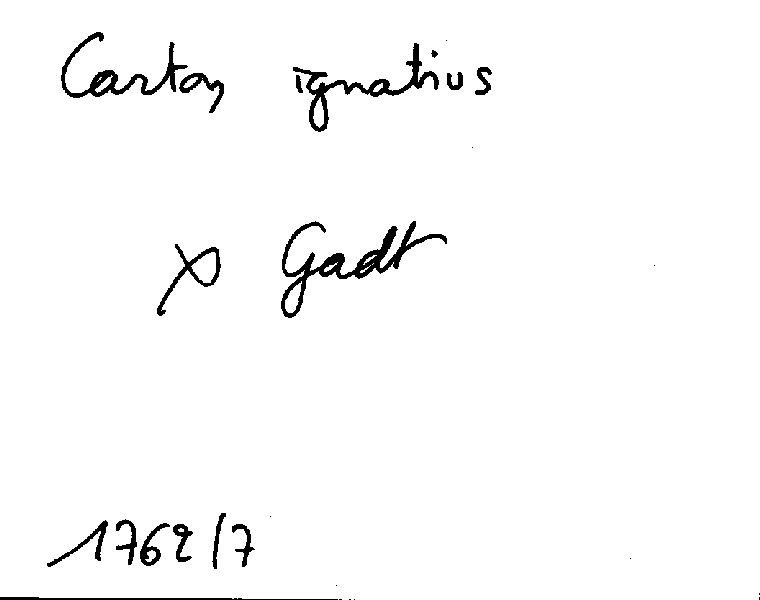 Carton ignatius
x Gadt
1762/7